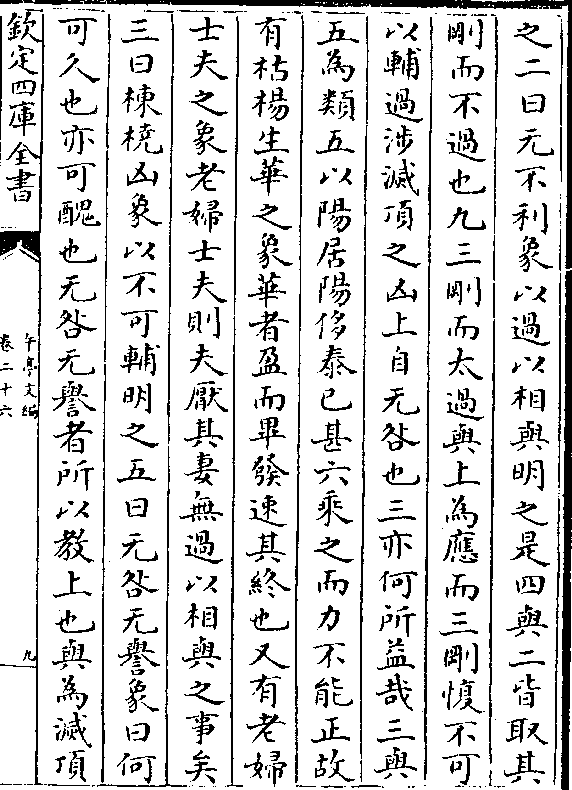 之二曰无不利象以過以相與明之是四與二皆取其
剛而不過也九三剛而太過與上為應而三剛愎不可
以輔過涉滅項之凶上自无咎也三亦何所益哉三與
五為類五以陽居陽侈泰已甚六乘之而力不能正故
有枯楊生華之象華者盈而畢發速其終也又有老婦
士夫之象老婦士夫則夫厭其妻無過以相與之事矣
三曰棟橈凶象以不可輔明之五曰无咎无譽象曰何
可久也亦可醜也无咎无譽者所以教上也與為滅項
欽定四庫全書
午亭文編
卷二十六
九